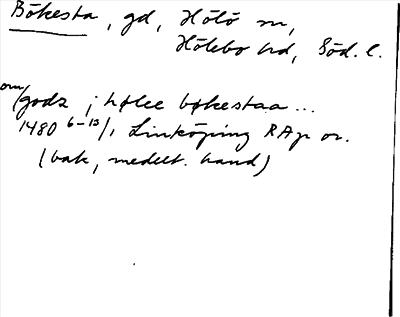 Bökesta, gd, Hölö sn,
Hölebo hd, Söd. l.
om godz i hølee bøkestaa...
1480 6-13/1 Linköping RAp or.
(bak, medelt. hand)